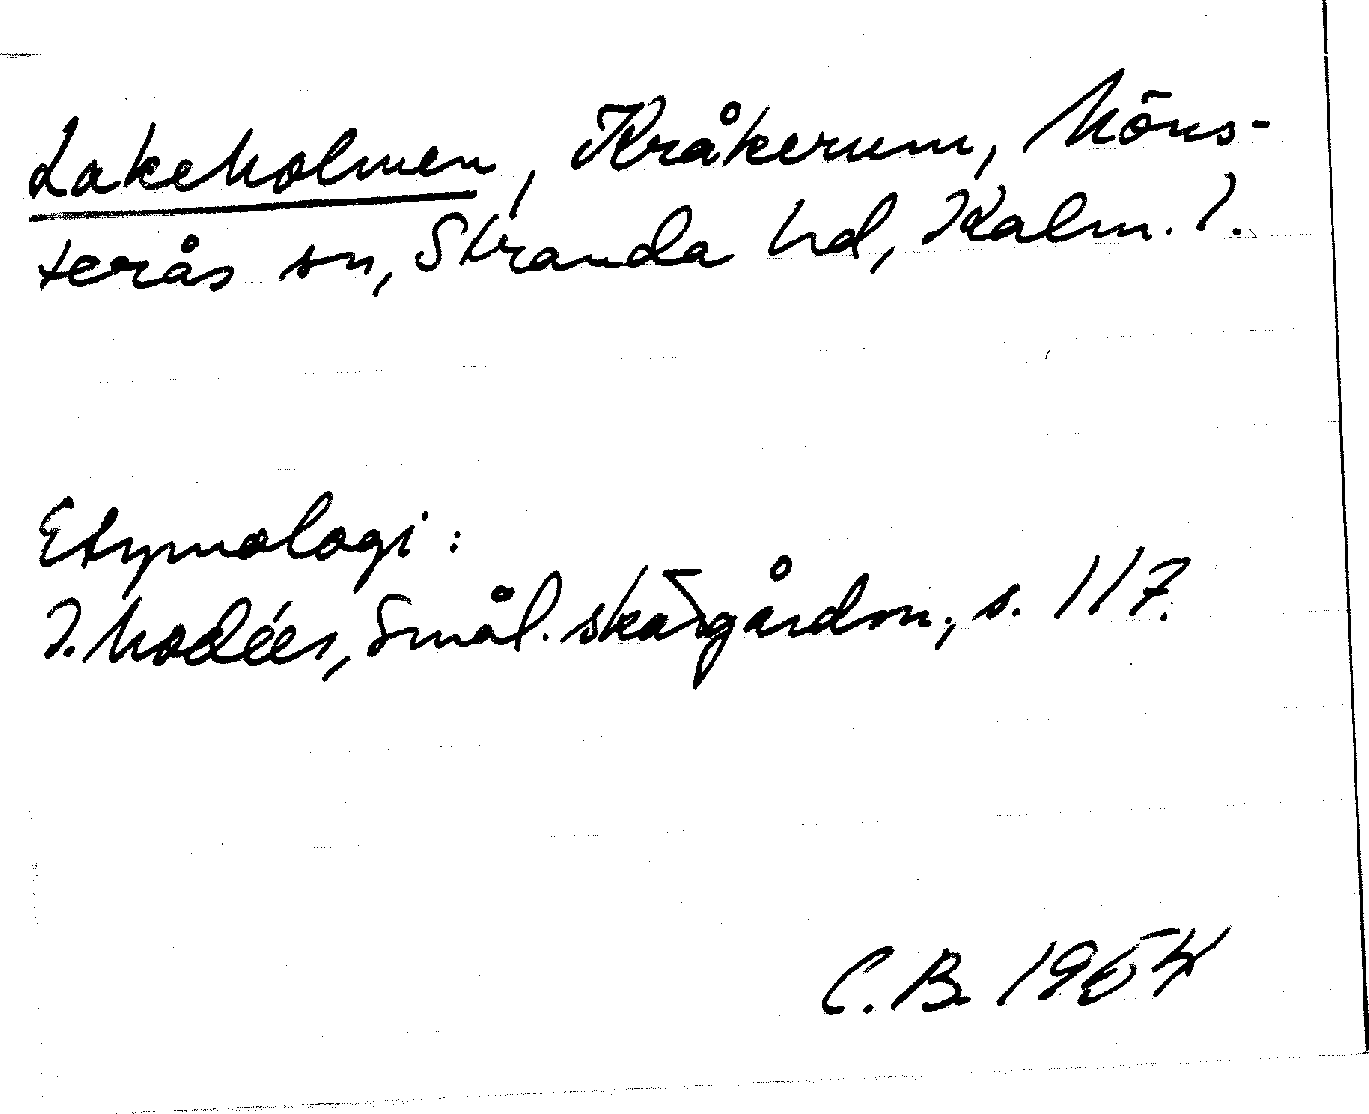 Lakeholmen, Kråkerum, Möns-
terås sn, Stranda hd, Kalm. l.
Etymologi:
I. Modéer, Smål. skärgårdsn., s. 117.
C.B. 1954